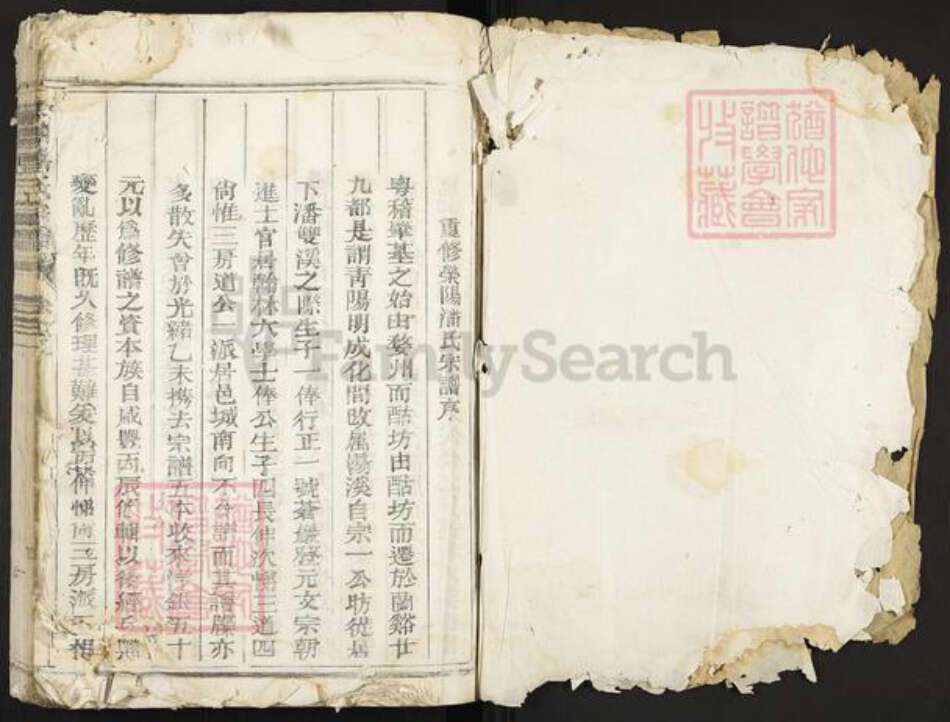 重修滎陽潘氏宗譜序
粵稽肇基之始由婺州而酤坊由酤坊而遷於蘭谿廿
九都是謂靑陽明成化間改屬湯溪自宗一公昉從居
下潘雙溪之際生子一俸行正一號蒼巖登元文宗朝
進士官居翰林大學士俸公生子四長伸次悌三道四
尙惟三房道公一派居邑城南向不合譜而其譜牒亦
多散失曾於光緒乙未攜去宗譜五本收來洋銀五十
元以爲修譜之資本族自咸豐丙辰後輯以後經兵燹
變亂歷年既久修理甚難爰以房伸悌尙三房派下相
FamilySearch
譜學會
藏